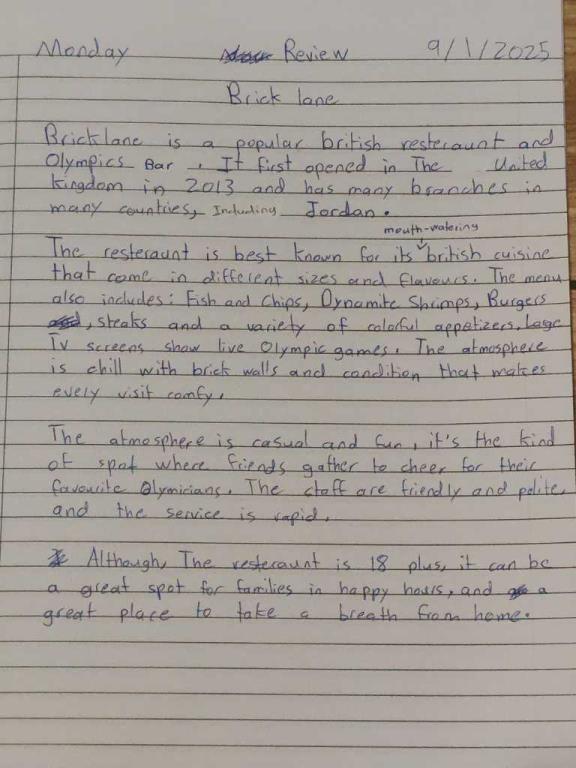 Monday Review 9/1/2025
Brick lane
Bricklane is a popular british resteraunt and
Olympics Bar . It first opened in The United
kingdom in 2013 and has many branches in
many counties, Including Jordan.
mouth-watering
The resteraunt is best known for its british cuisine
that come in different sizes and flavours. The menu
also includes: Fish and Chips, Dynamite Shrimps, Burgers
, steaks and a variety of colorful appetizers. Large
Tv screens show live Olympic games. The atmosphere
is chill with brick walls and condition that makes
every visit comfy.
The atmosphere is casual and fun, it's the kind
of spot where friends gather to cheer for their
favourite Olymicians. The staff are friendly and polite,
and the service is rapid.
Although, The resteraunt is 18 plus, it can be
a great spot for families in happy hours, and a
great place to take a breath from home.